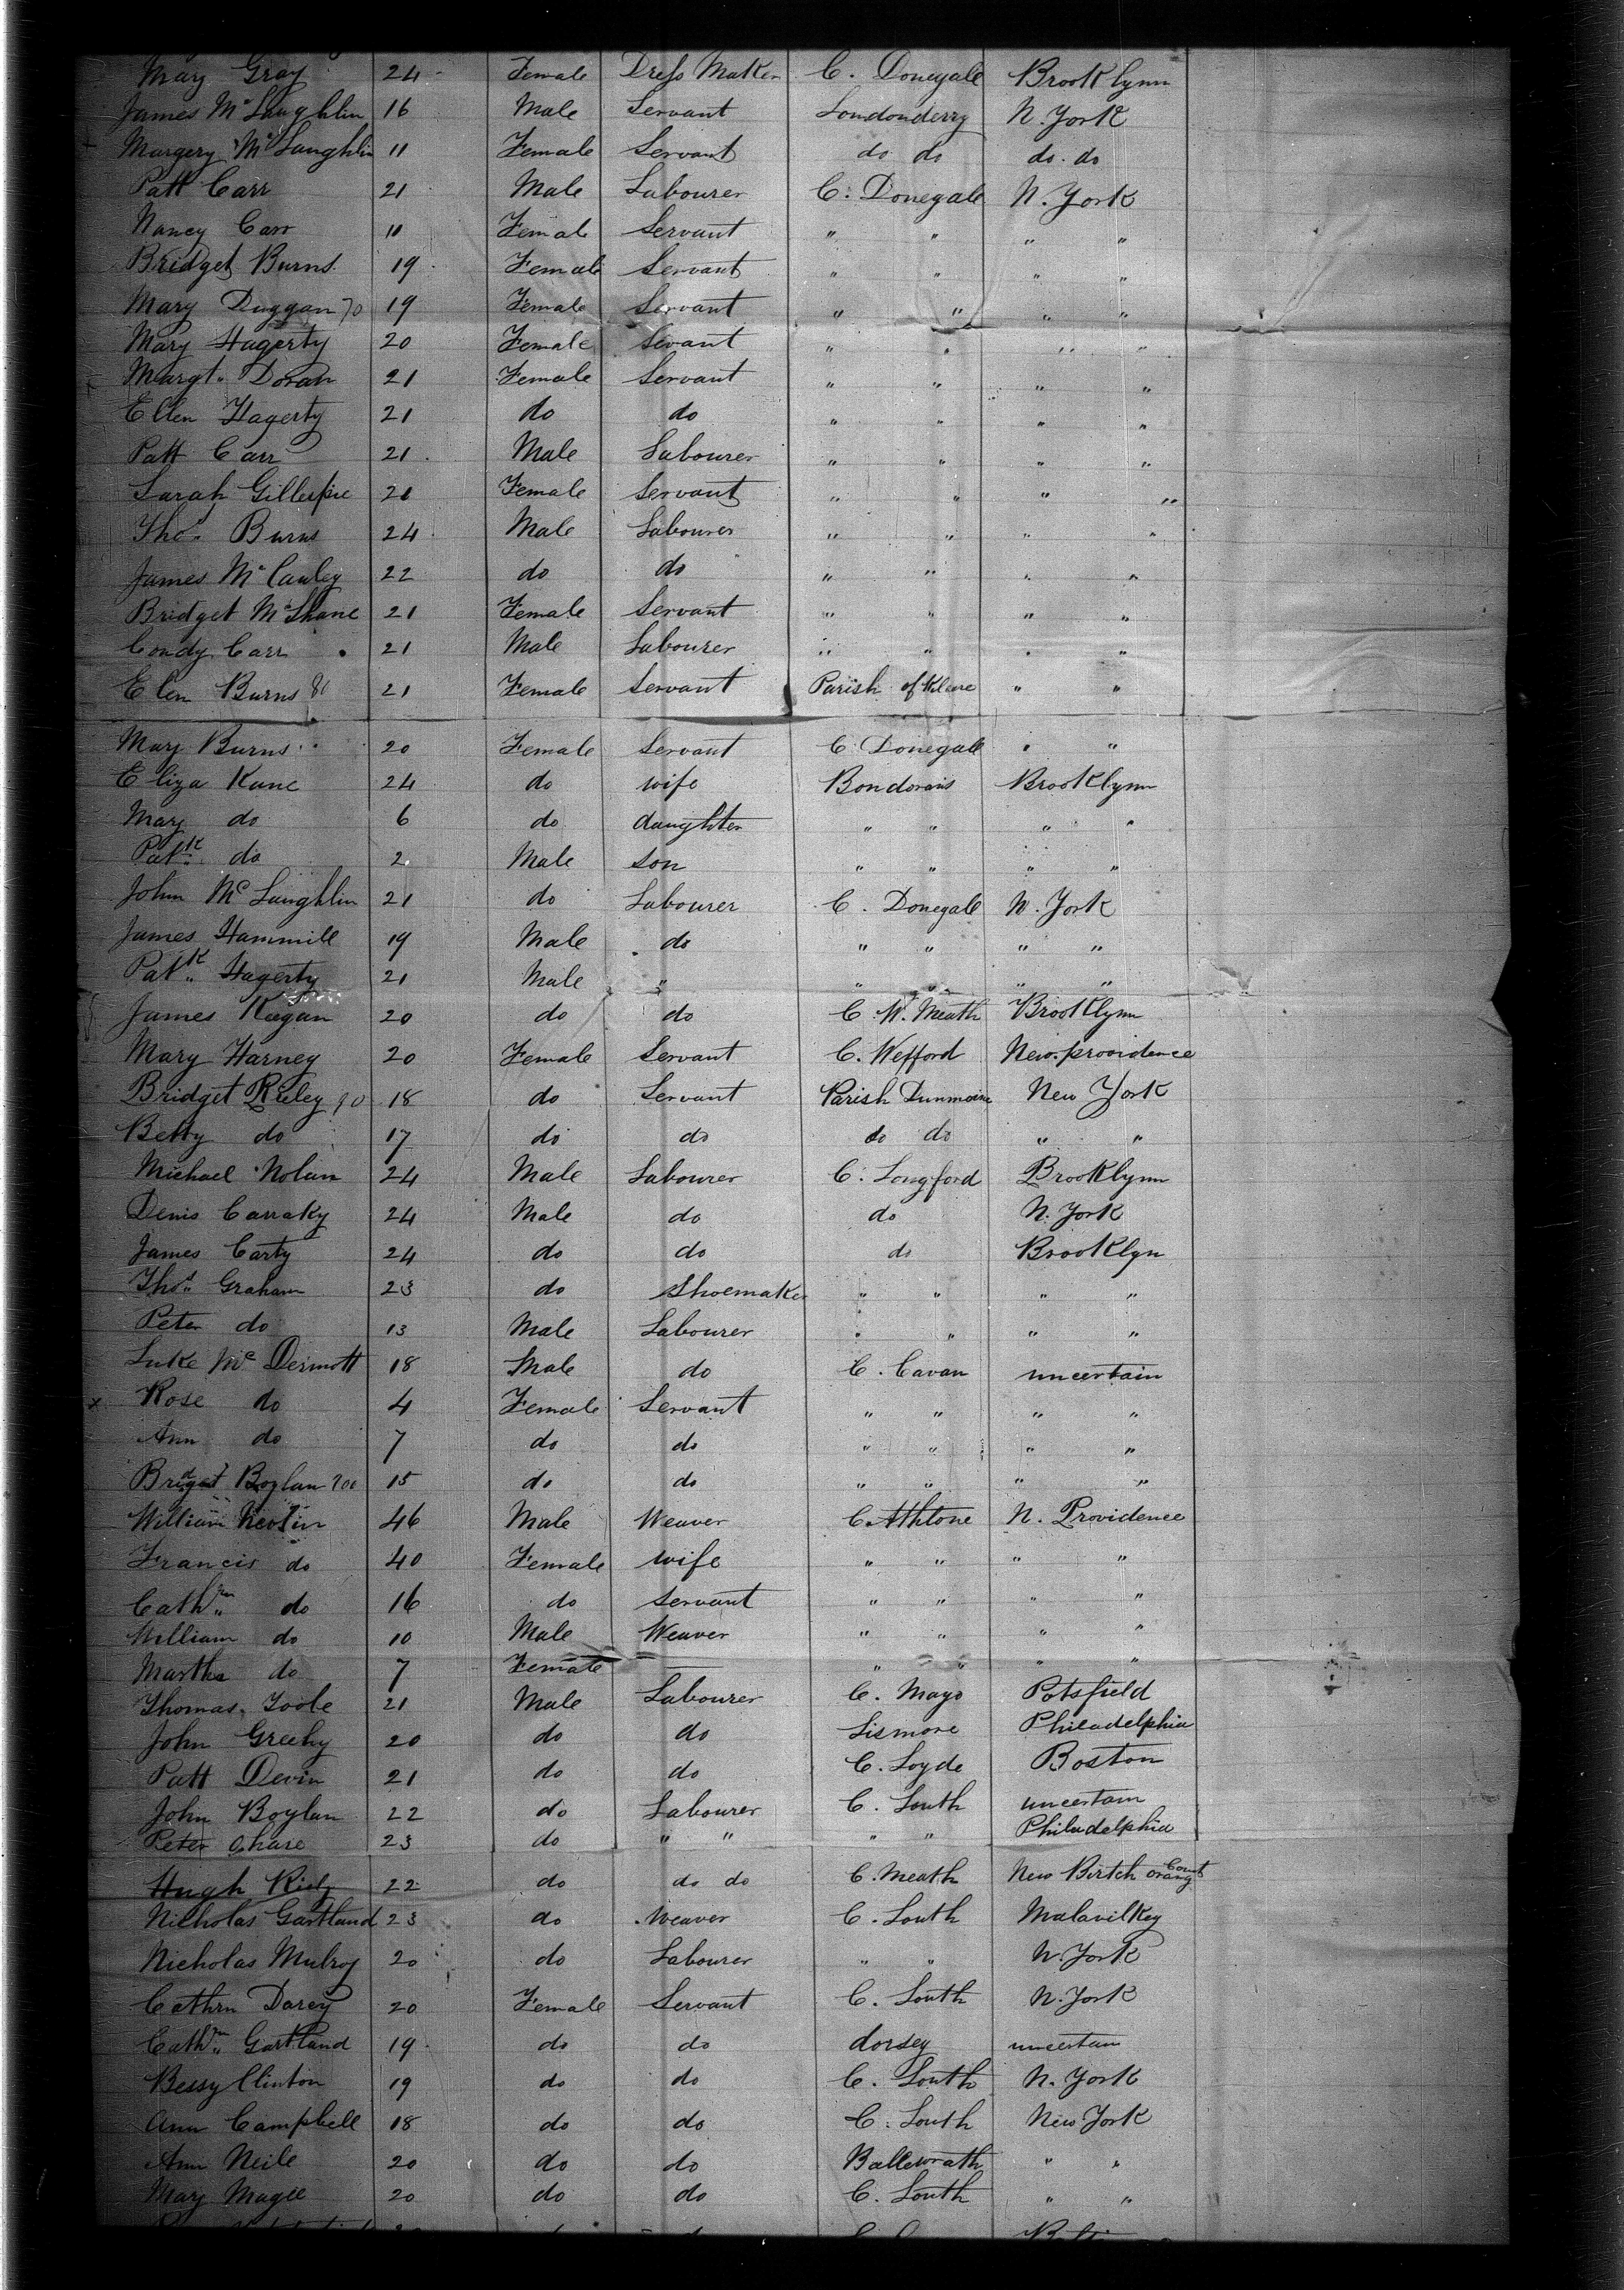 Mary Gray 24 Female Dress Maker C. Donegale Brooklynn
James Mc Laughlin 16 Male Servant Londonderry N. York
Margery Mc Laughlin 11 Female Servant do do do. do
Patt Carr 21 Male Labourer C. Donegale N. York
Nancy Carr 11 Female Servant " " " "
Bridget Burns 19 Female Servant " " " "
Mary Duggan 70 19 Female Servant " " " "
Mary Hagerty 20 Female Sevant " " " "
Margt. Doran 21 Female Servant " " " "
Ellen Hagerty 21 do do " " " "
Patt Carr 21 Male Labourer " " " "
Sarah Gillespie 21 Female Servant " " " "
Thos. Burns 24 Male Labourer " " " "
James Mc Cauley 22 do do " " " "
Bridget Mc Shane 21 Female Servant " " " "
Condy Carr 21 Male Labourer " " " "
Elen Burns 80 21 Female Servant Parish of " "
Mary Burns 20 Female Servant C. Donegale " "
Eliza Kane 24 do wife Bondorans Brooklynn
Mary do 6 do daughter " " " "
Patk. do 2 Male son " " " "
John Mc Laughlin 21 do Labourer C. Donegale N. York
James Hammill 19 Male do " " " "
Patk. Hagerty 21 Male " " " " "
James Keegan 20 do do C. W. Meath Brooklynn
Mary Harney 20 Female Servant C. Wefford New. providence
Bridget Rieley 90 18 do Servant Parish New York
Betty do 17 do do do do " "
Michael Nolan 24 Male Labourer C. Longford Brooklynn
Denis Carraky 24 Male do do N. York
James Carty 24 do do do Brooklyn
Thos. Graham 23 do Shoemaker " " " "
Peter do 13 Male Labourer " " " "
Luke Mc Dermott 18 Male do C. Cavan uncertain
x Rose do 4 Female Servant " " " "
Ann do 7 do do " " " "
Bridget Boylan 100 15 do do " " " "
William 46 Male Weaver C. Athlone N. Providence
Francis do 40 Female wife " " " "
Cathrn do 16 do servant " " " "
William do 10 Male Weaver " " " "
Martha do 7 Female " " " "
Thomas Toole 21 Male Labourer C. Mayo Potsfield
John Greehy 20 do do Lismore Philadelphia
Patt Devin 21 do do C. Loyde Boston
John Boylan 22 do Labourer C. Louth uncertain
Peter 23 do " " " " Philadelphia
Hugh Riely 22 do do do C. Meath New Birtch Orang Count
Nicholas Gartland 23 do Weaver C. Louth Malavilkey
Nicholas Mulroy 20 do Labourer " " N. York
Cathrn Darcy 20 Female Servant C. Louth N. York
Cathrn Gartland 19 do do dorsey uncertain
Bessy Clinton 19 do do C. Louth N. York
Ann Campbell 18 do do C. Louth New York
Ann Neile 20 do do Ballewrath " "
Mary Magee 20 do do C. Louth " "